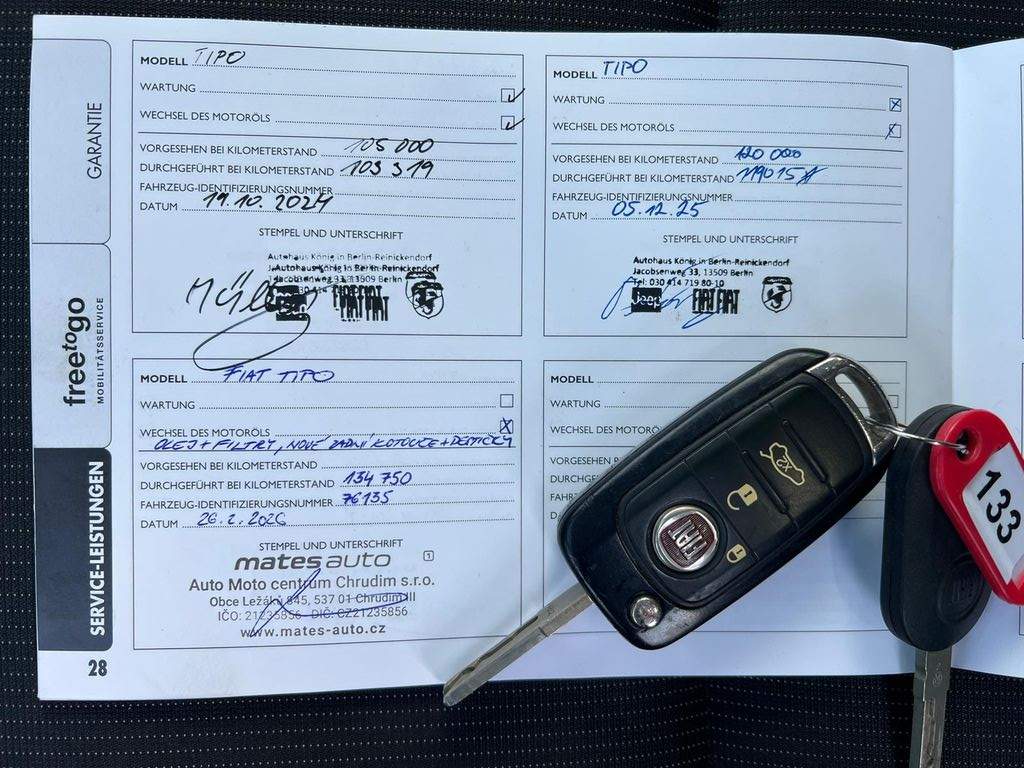 GARANTIE
freetogo
MOBILITÄTSSERVICE
SERVICE-LEISTUNGEN
28
MODELL TIPO
WARTUNG
WECHSEL DES MOTORÖLS
VORGESEHEN BEI KILOMETERSTAND 105 000
DURCHGEFÜHRT BEI KILOMETERSTAND 103 319
FAHRZEUG-IDENTIFIZIERUNGSNUMMER
DATUM 10.2024
STEMPEL UND UNTERSCHRIFT
Autohaus König in Berlin-Reinickendorf
Autohaus König in Berlin-Reinickendorf
Jacobsenweg 33, 13509 Berlin
030 414
Jeep FIAT FIAT
MODELL TIPO
WARTUNG
WECHSEL DES MOTORÖLS
VORGESEHEN BEI KILOMETERSTAND 120 000
DURCHGEFÜHRT BEI KILOMETERSTAND 119015
FAHRZEUG-IDENTIFIZIERUNGSNUMMER
DATUM 05.12.25
STEMPEL UND UNTERSCHRIFT
Autohaus König in Berlin-Reinickendorf
Jacobsenweg 33, 13509 Berlin
Tel: 030 414 719 80-10
Jeep FIAT FIAT
MODELL FIAT TIPO
WARTUNG
WECHSEL DES MOTORÖLS
OLEJ + FILTRY, NOVÉ ZADNÍ KOTOUČE + DESTIČKY
VORGESEHEN BEI KILOMETERSTAND
DURCHGEFÜHRT BEI KILOMETERSTAND 134 750
FAHRZEUG-IDENTIFIZIERUNGSNUMMER 76135
DATUM 26.2.2026
STEMPEL UND UNTERSCHRIFT
mates auto 1
Auto Moto centrum Chrudim s.r.o.
Obce Ležáků 845, 537 01 Chrudim III
IČO: 21235856 DIČ: CZ21235856
www.mates-auto.cz
MODELL
WARTUNG
WECHSEL DES MOTORÖ
VORGESEHEN
DURCHGEF
FAHR
D
X2
FIAT
133